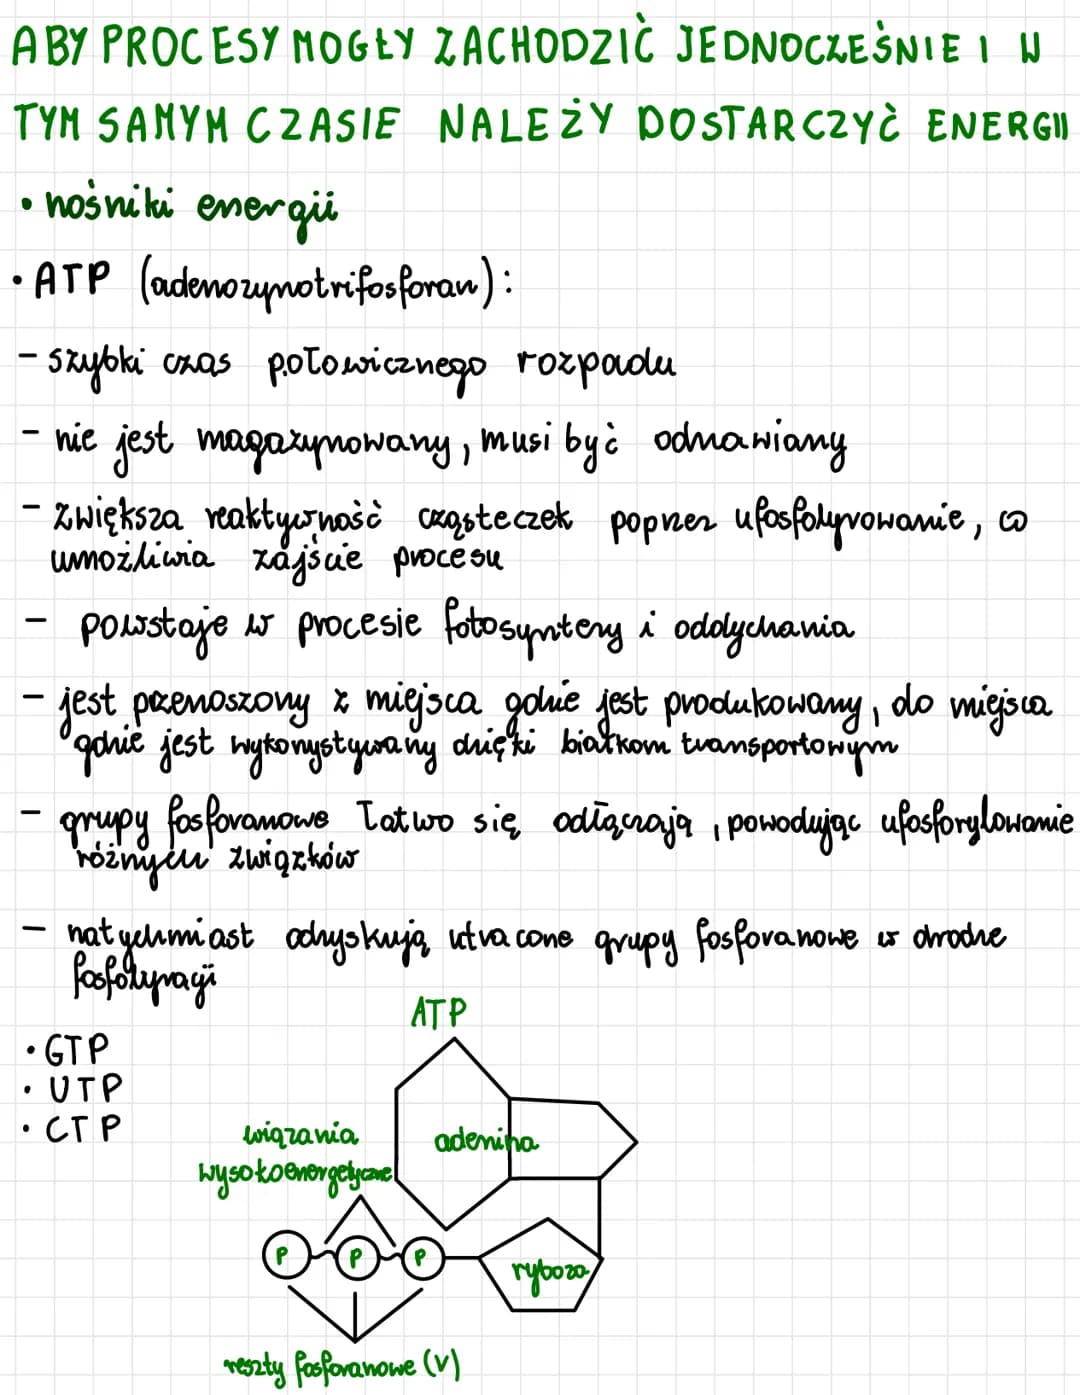 ABY PROCESY MOGŁY ZACHODZIĆ JEDNOCZEŚNIE I W
TYM SAMYM CZASIE NALEŻY DOSTARCZYĆ ENERGII
• nośniki energii
• ATP (adenozynotrifosforan):
- szybki czas połowicznego rozpadu
- nie jest magazynowany, musi być odnawiany
- zwiększa reaktywność cząsteczek poprzez ufosfolyrowanie, co
umożliwia zajście procesu
- powstaje w procesie fotosyntezy i oddychania
- jest przenoszony z miejsca gdzie jest produkowany, do miejsca
gdzie jest wykorzystywany dzięki białkom transportowym
- grupy fosforanowe łatwo się odłączają, powodując ufosforylowanie
różnych związków
- natychmiast odzyskują utracone grupy fosforanowe w drodze
fosfolyracji
• GTP
• UTP
• CTP
ATP
wiązania
wysokoenergetyczne
adenina
P P P
ryboza
reszty fosforanowe (V)